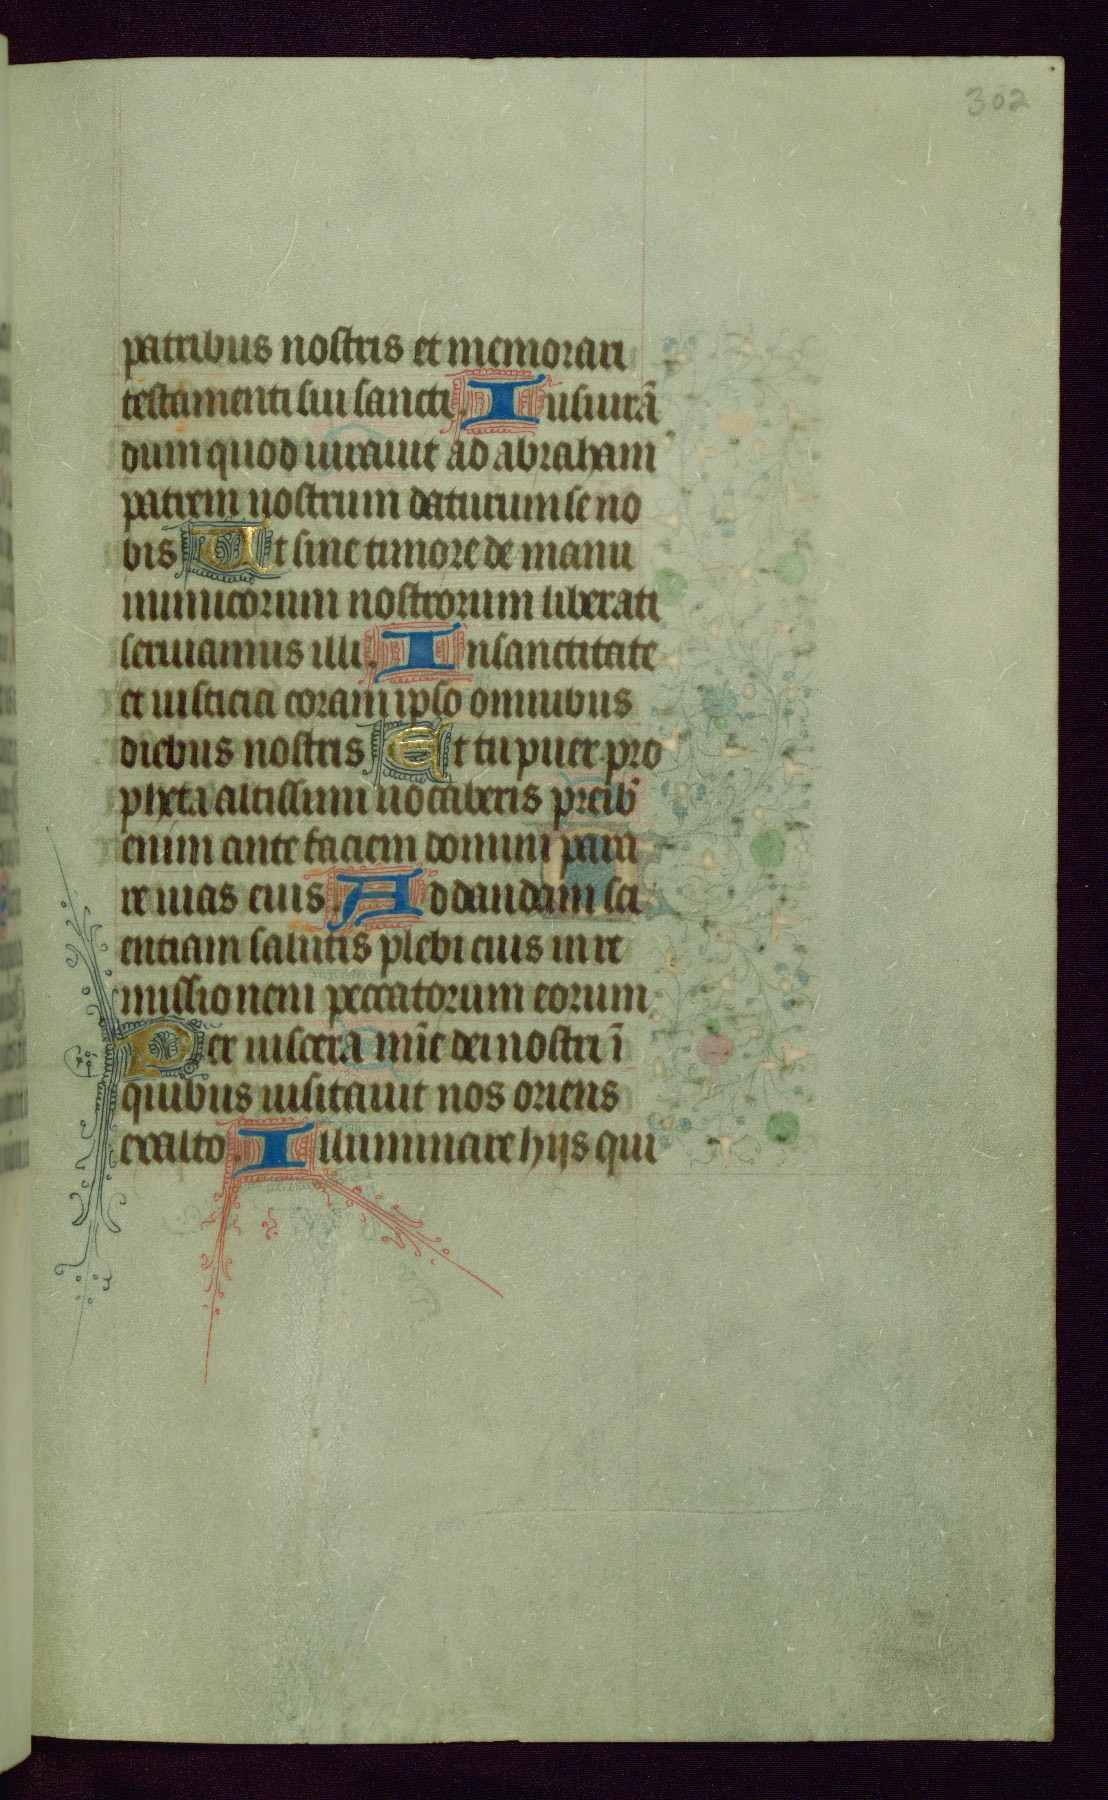 302
patribus nostris et memorari
testamenti sui sancti. Iusiurā
dum quod iurauit ad abraham
patrem nostrum daturum se no
bis Ut sine timore de manu
inimicorum nostrorum liberati
seruiamus illi. In sanctitate
et iusticia coram ipso omnibus
diebus nostris Et tu puer pro
pheta altissimi uocaberis preib᾿
enim ante faciem domini para
re uias eius. Ad dandam sci
entiam salutis plebi eius in re
missionem peccatorum eorum
Per uiscera mīe dei nostri ī
quibus uisitauit nos oriens
exalto. Illuminare hijs qui